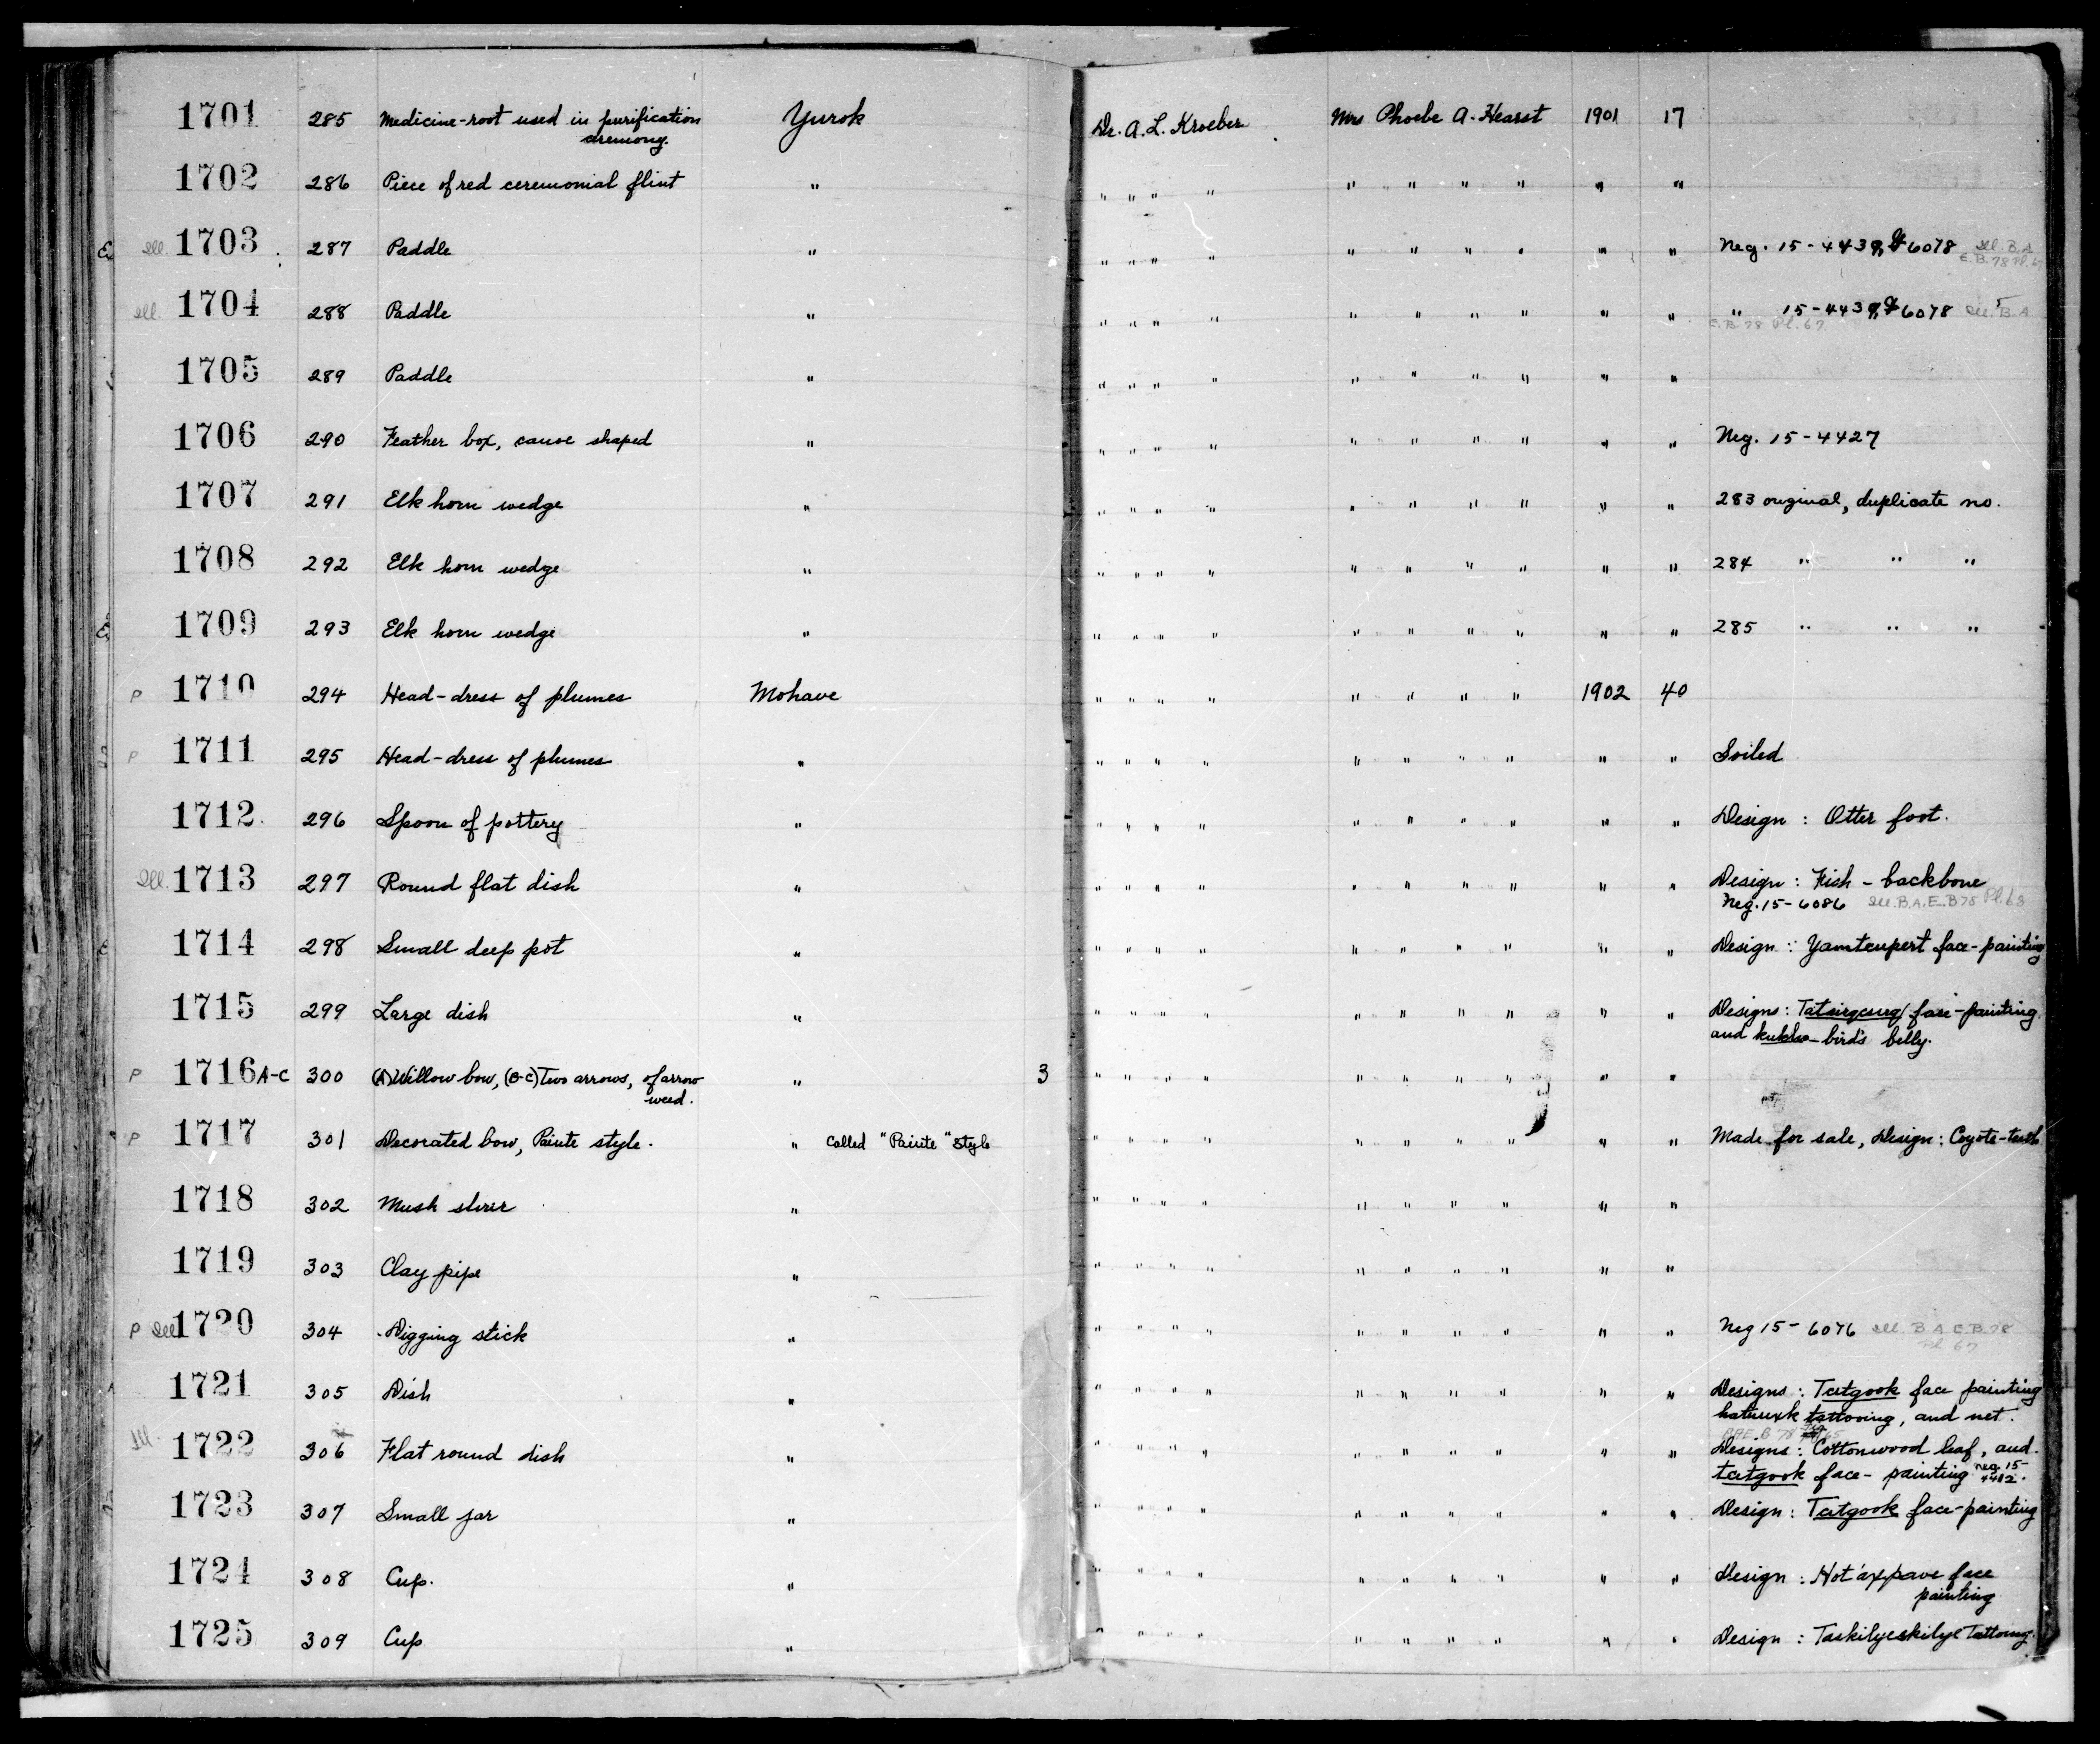 1701 285 Medicine-root used in purification Yurok Dr. A. L. Kroeber Mrs Phoebe A. Hearst 1901 17
ceremony.
1702 286 Piece of red ceremonial flint " " " " " " " " " " "
Ill. 1703 287 Paddle " " " " " " " " " " " Neg. 15-4439, 6078 Ill. B.A.
E.B. 78 Pl. 67
Ill. 1704 288 Paddle " " " " " " " " " " " " 15-4439, 6078 Ill. B.A
E.B. 78 Pl. 67
1705 289 Paddle " " " " " " " " " " "
1706 290 Feather box, canoe shaped " " " " " " " " " " " Neg. 15-4427
1707 291 Elk horn wedge " " " " " " " " " " " 283 original, duplicate no.
1708 292 Elk horn wedge " " " " " " " " " " " 284 " " "
1709 293 Elk horn wedge " " " " " " " " " " " 285 " " "
P 1710 294 Head-dress of plumes Mohave " " " " " " " " 1902 40
P 1711 295 Head-dress of plumes " " " " " " " " " " " Soiled
1712 296 Spoon of pottery " " " " " " " " " " " Design : Otter foot.
Ill. 1713 297 Round flat dish " " " " " " " " " " " Design : Fish - backbone
Neg. 15-6086 Ill. B.A.E. B 78 Pl. 68
1714 298 Small deep pot " " " " " " " " " " " Design : Yamtcupert face-painting
1715 299 Large dish " " " " " " " " " " " Designs : face-painting
and bird's belly.
P 1716 A-C 300 (A) Willow bow, (B-C) Two arrows, of arrow " 3 " " " " " " " " " "
weed.
P 1717 301 Decorated bow, Paiute style. " Called "Paiute" style " " " " " " " " " " Made for sale, Design : Coyote-teeth
1718 302 Mush stirrer " " " " " " " " " " "
1719 303 Clay pipe " " " " " " " " " " "
P Ill 1720 304 Digging stick " " " " " " " " " " " Neg 15-6076 Ill. B A E B. 78
Pl 67
1721 305 Dish " " " " " " " " " " " Designs : Tatgook face painting
tattooing, and net.
Ill. 1722 306 Flat round dish " " " " " " " " " " " BAE. B 78 65
Designs : Cottonwood leaf, and
tatgook face- painting Neg. 15-
4412.
1723 307 Small jar " " " " " " " " " " " Design : Tatgook face-painting
1724 308 Cup. " " " " " " " " " " " Design : Hot'axpave face
painting
1725 309 Cup " " " " " " " " " " " Design : Taskilyeskilye Tattooing.